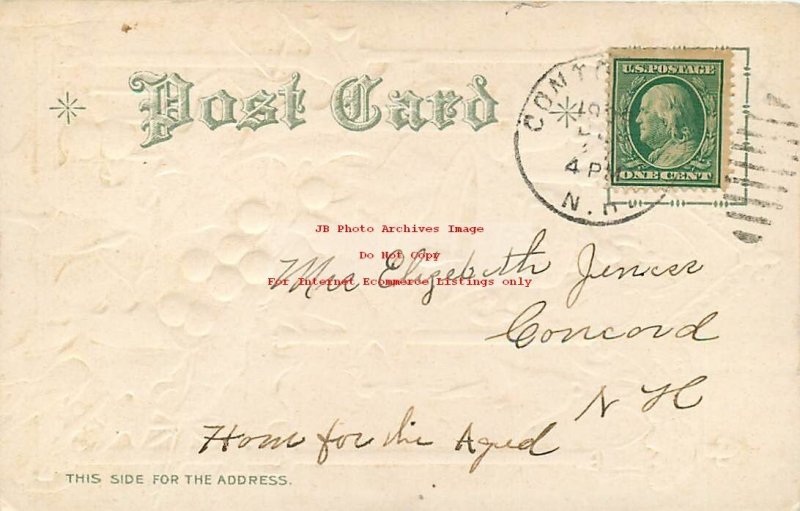 Post Card
U.S. POSTAGE
ONE CENT
4 PM
N.H.
JB Photo Archives Image
Do Not Copy
For Internet Ecommerce Listings only
Mrs Elizabeth Jeness
Concord
N H
Home for the Aged
THIS SIDE FOR THE ADDRESS.